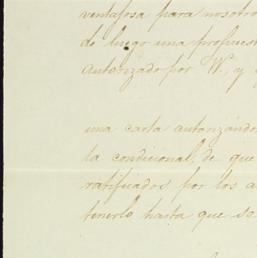 ventajosa para nosotro
de luego una propues
autorizado por W, y
una carta autorizándo
la condicional, de que
ratificados por los a
tenerlo hasta que se